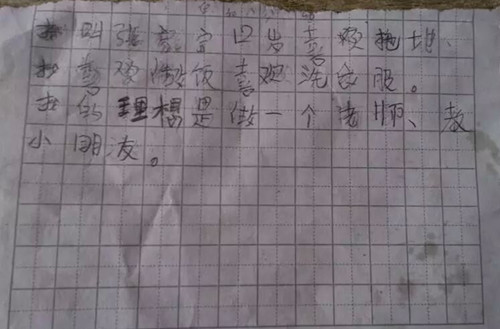 我叫张家宜四岁喜欢拖地、
我喜欢做饭喜欢洗衣服。
我的理想是做一个老师、教
小朋友。